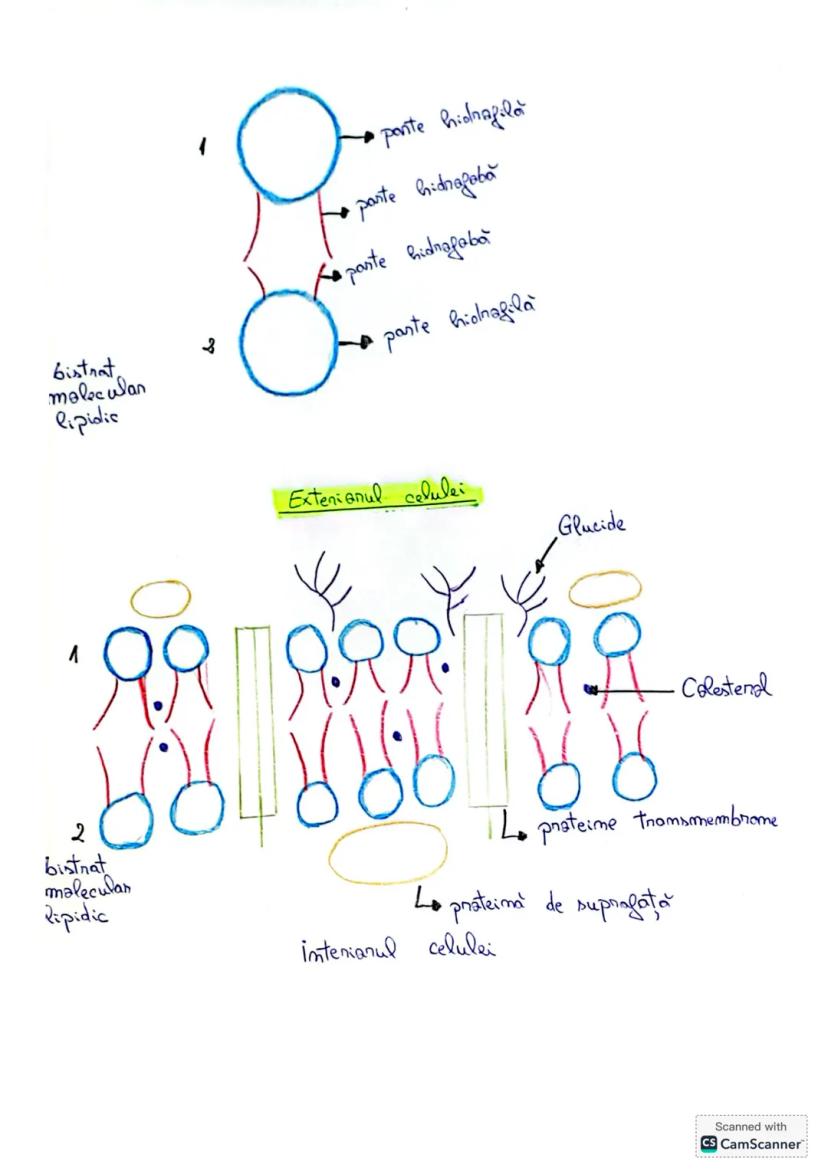 1
parte hidrofilă
parte hidrofobă
parte hidrofobă
parte hidrofilă
2
bistrat
molecular
lipidic
Exteriorul celulei
Glucide
1
Colesterol
proteine transmembrane
2
bistrat
molecular
lipidic
proteină de suprafață
interiorul celulei
Scanned with
CS CamScanner